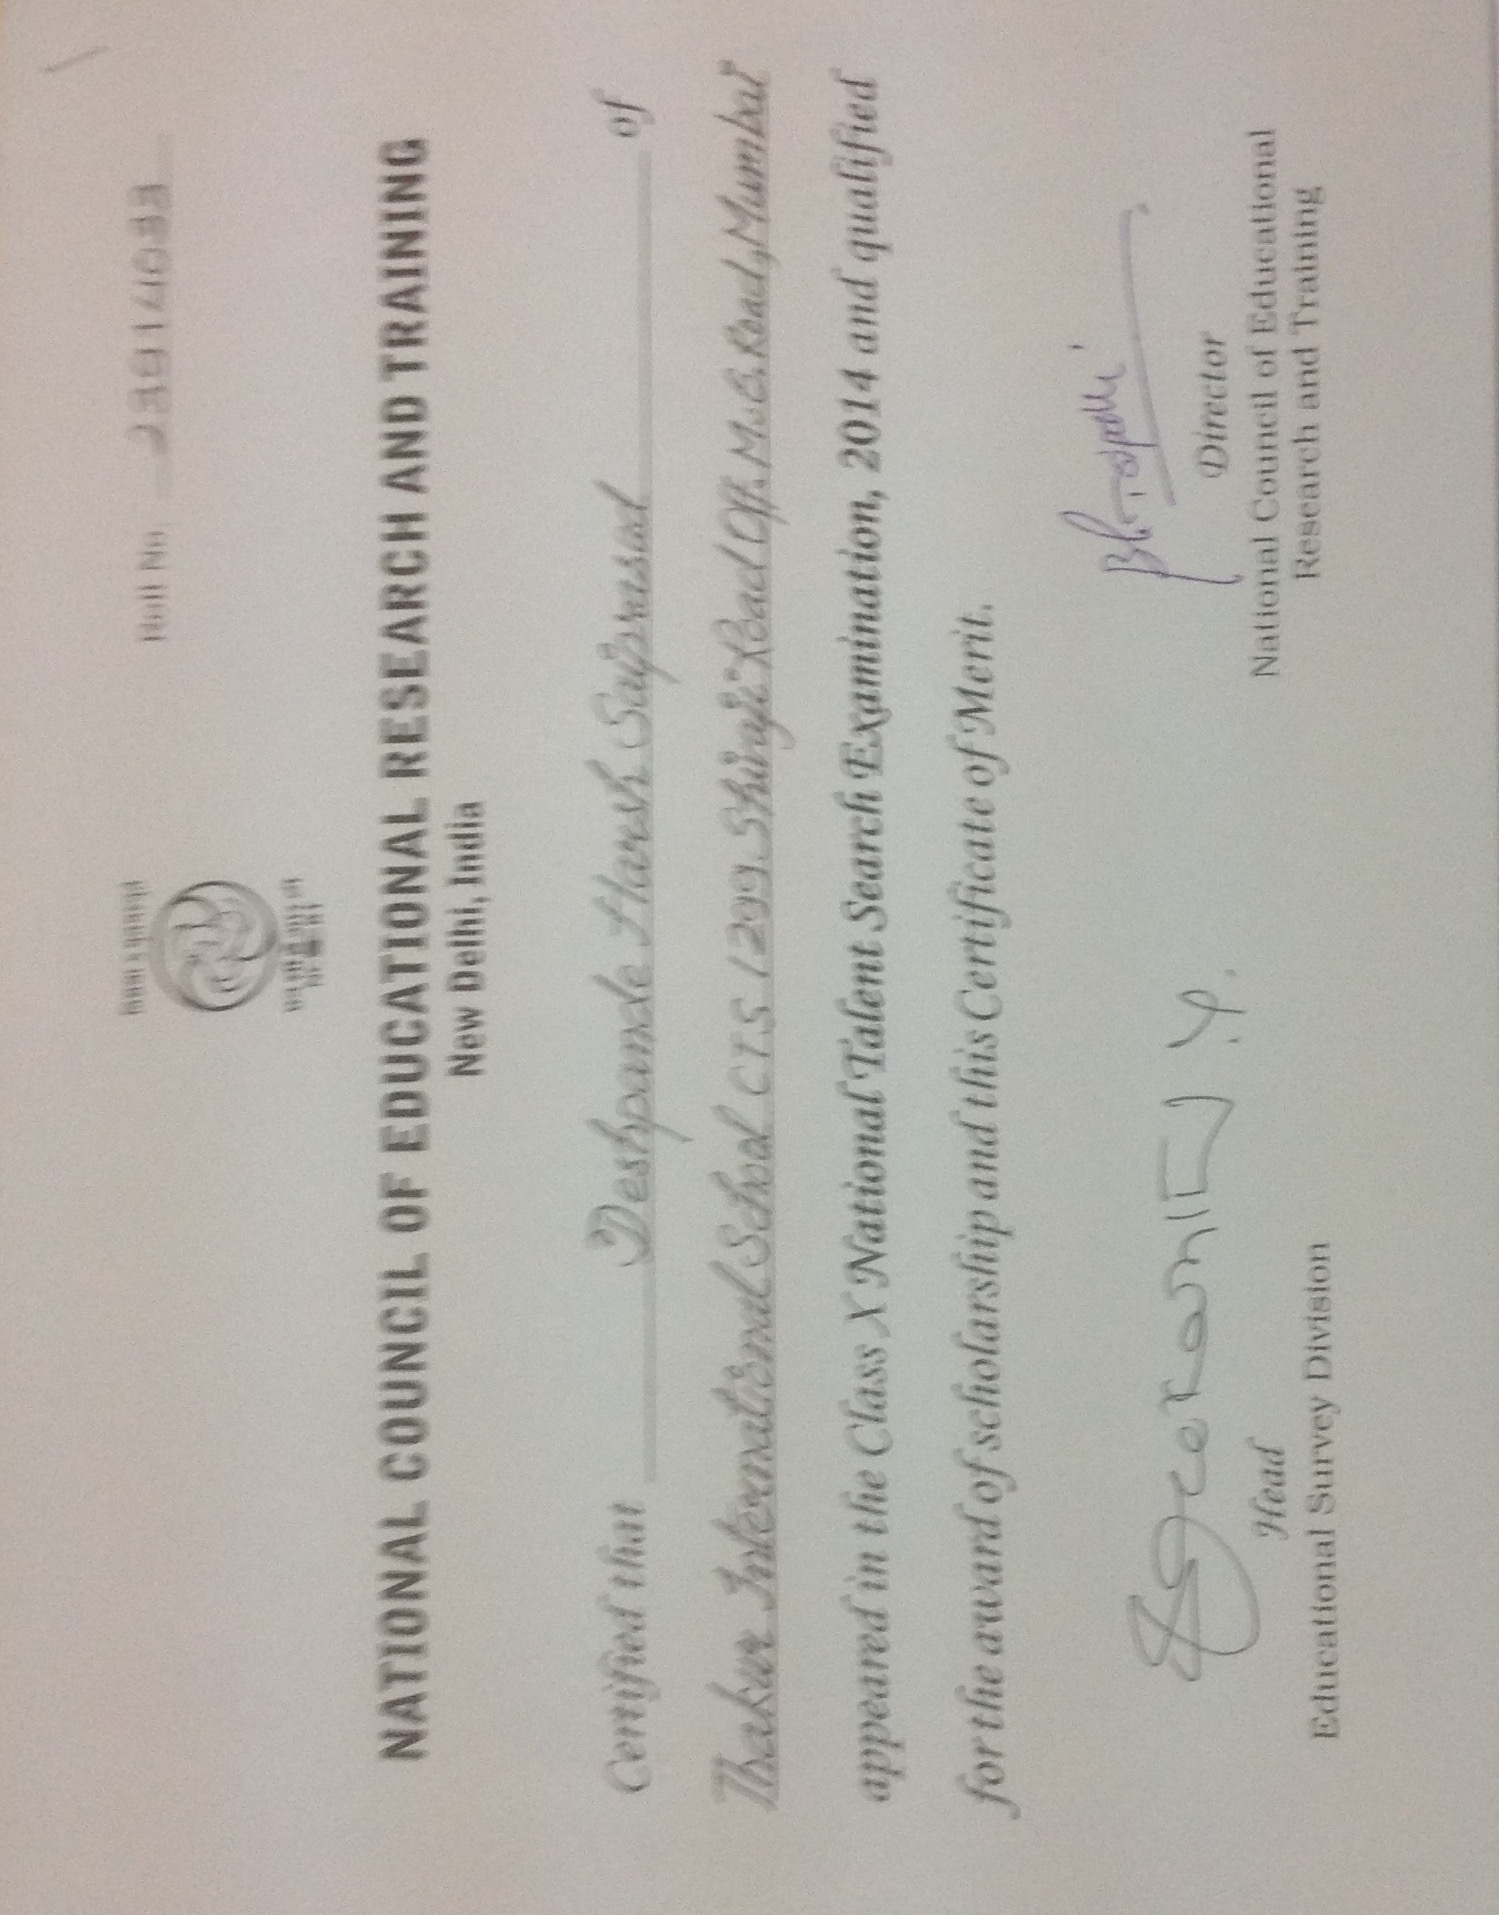 Roll No.
NCERT
NATIONAL COUNCIL OF EDUCATIONAL RESEARCH AND TRAINING
New Delhi, India
Certified that Deshpande Harsh Saiprasad of
Thakur International School CTS 1299. Shivaji Road Off. M.G. Road, Mumbai
appeared in the Class X National Talent Search Examination, 2014 and qualified
for the award of scholarship and this Certificate of Merit.
Head
Educational Survey Division
Director
National Council of Educational
Research and Training